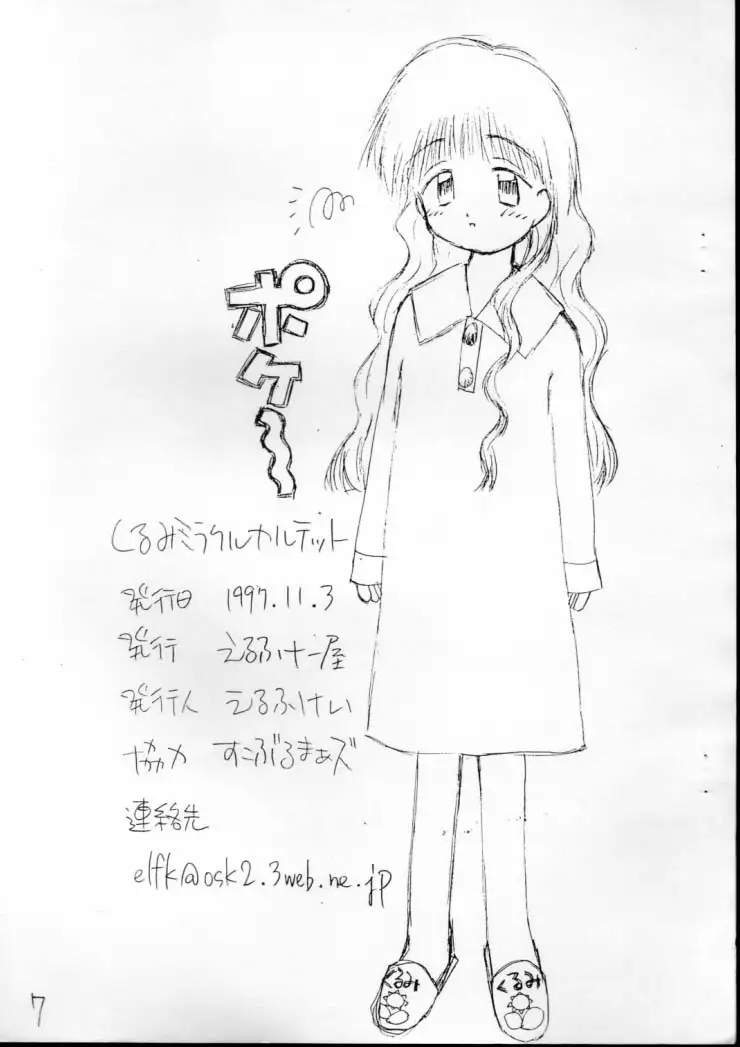 ポケ〜
くるみミラクルカルテット
発行日 1997.11.3
発行 えるふけー屋
発行人 えるふけい
協力 すこぶるまぁズ
連絡先
elfk@osk2.3web.ne.jp
くるみ
くるみ
7